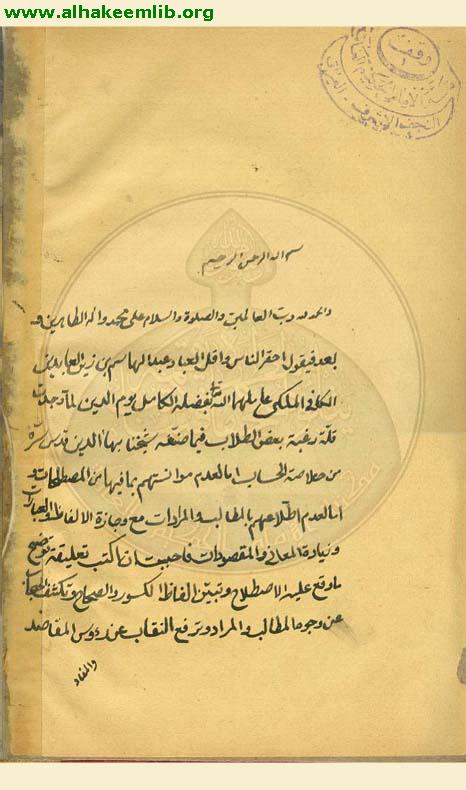 www.alhakeemlib.org
وقف
النجف الاشرف - العراق
بسم الله الرحمن الرحيم
والحمد لله رب العالمين والصلوة والسلام على محمد واله الطاهرين و
بعد فيقول احقر الناس واقل العباد عبد الهاشم بن زين العابدين
عاملهما الله بفضله الكامل يوم الدين لما وجدت
قلة رغبة بعض الطلاب فيما صنفه شيخنا بهاء الدين قدس سره
من خلاصة الحساب اما لعدم موانستهم بما فيها من المصطلحات و
اما لعدم اطلاعهم بالمطالب والمرادات مع وجازة الالفاظ والعبارات
وزيادة المعاني والمقصودات فاحببت ان اكتب تعليقة توضح
ما وقع عليه الاصطلاح وتبين الفاظ الكسور والصحاح وتكشف الحجاب
عن وجوه المطالب والمراد وترفع النقاب عن رؤس المقاصد
والمفاد